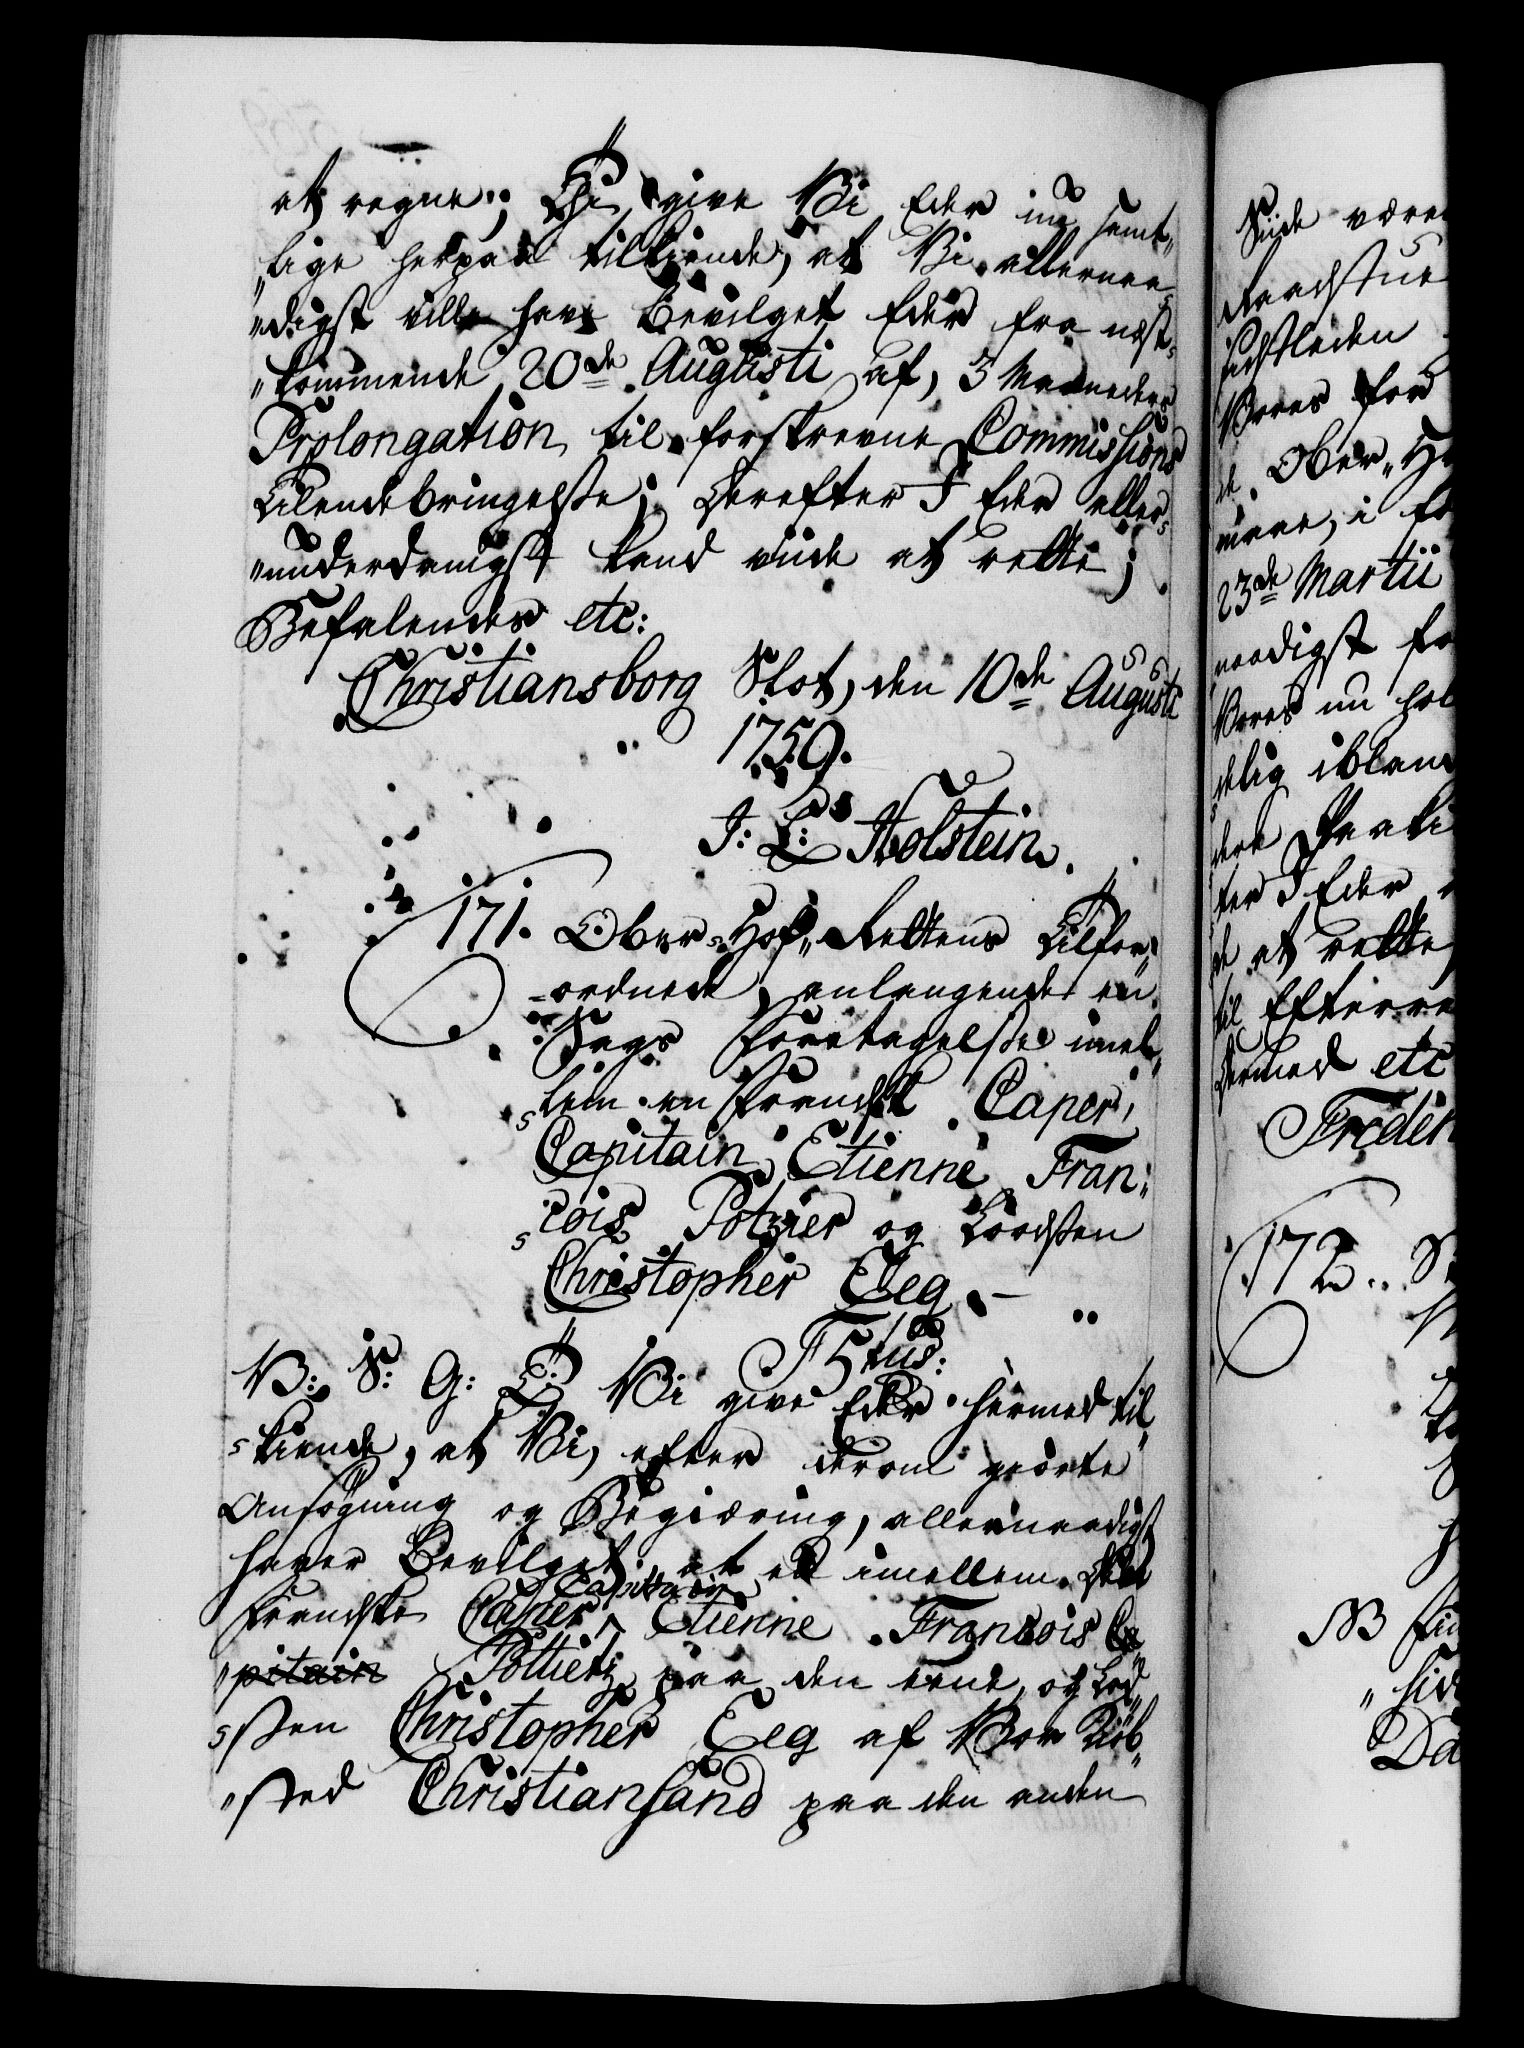 at regne; Thi give Vi Eder nu samt„
„lige herpaa tilkiende, at Vi allernaa„
„digst ville have bevilget Eder fra næst„
„kommende 20de Augusti af, 3 Maaneders
Prolongation til forskrevne Commissions
Tilendebringelsse; Derefter I Eder aller„
„underdanigst kand viide at rette;
Befalendes etc:
Christiansborg Slot, den 10de Augusti
1759.
J: L: Holstein.
171. Ober„Hof„Rettens Tilfor„
„ordnede, anlangende en
Sags Foretagelsse imel„
„lem en Fransk Caper„
Capitain Etienne Fran„
„cois Potzier og Lodssen
Christopher Eeg. –
F 5tus:
V: S: G: T: Vi give Eder hermed til„
„kiende, at Vi, efter derom giorte
Ansøgning og Begiæring, allernaadigst
haver bevilget, at en imellem den
Franske Caper Capitain Etienne Francois Ca„
„pitain Pottier paa den eene, og Lod„
„ssen Christopher Eeg af Vor Kiøb„
„sted Christiansand paa den anden
Siide være
Raadstue
sidstleden
Vores for
de. Ober„H
mare, i fo
23de Martii
naadigst fo
Vores nu hol
delig iblan
dere Paaki
ter I Eder
de at rette
til Efterre
dermed etc
Frider
172.. S
NB
Da